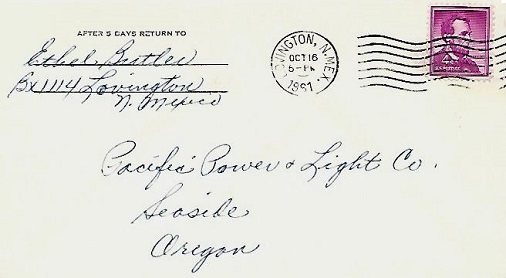 AFTER 5 DAYS RETURN TO
Ethel
Bx 1114 Lovington
N. Mexico
LOVINGTON, N. MEX.
OCT 16
5-PM
1961
4¢
U.S. POSTAGE
Pacific Power & Light Co.
Seaside
Oregon